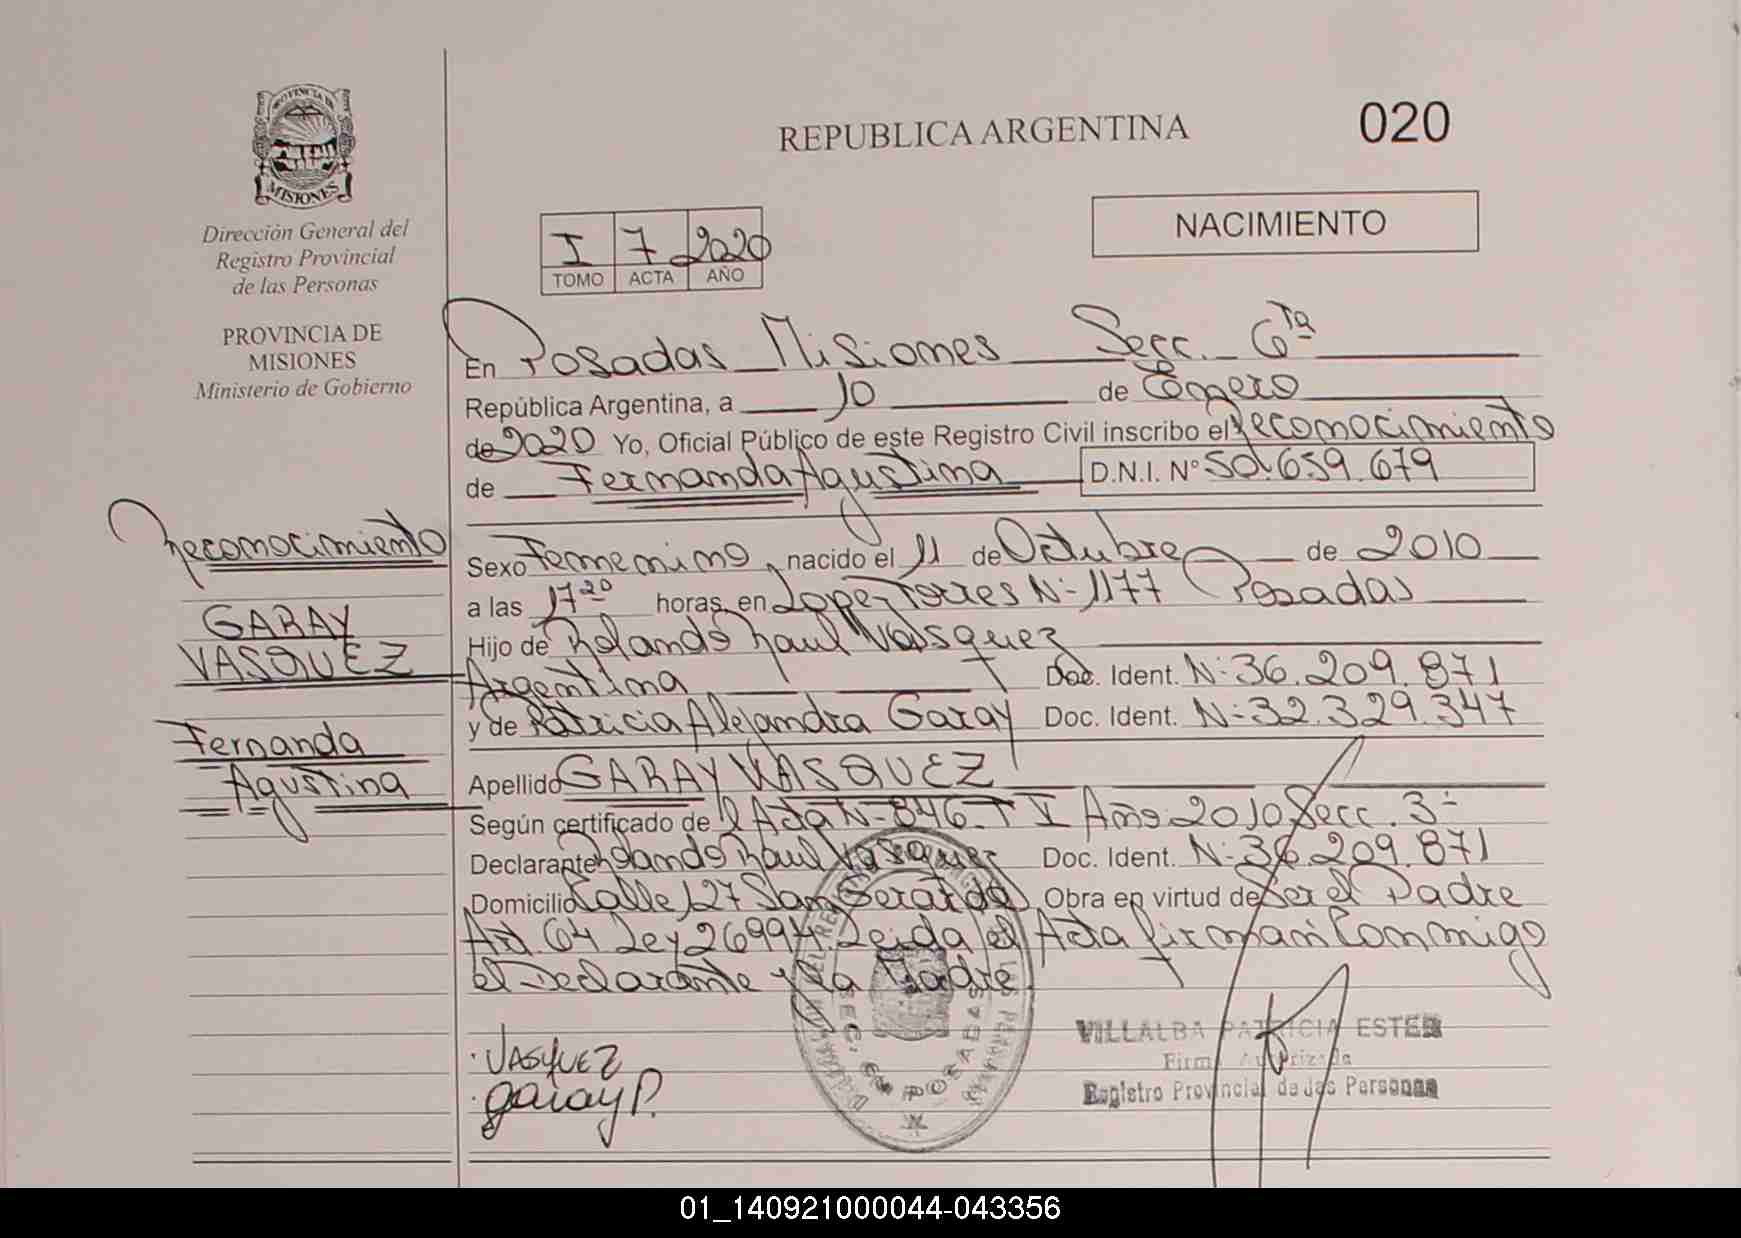 PROVINCIA DE
MISIONES
Dirección General del
Registro Provincial
de las Personas
PROVINCIA DE
MISIONES
Ministerio de Gobierno
REPUBLICA ARGENTINA
020
NACIMIENTO
I 7 2020
TOMO ACTA AÑO
En Posadas Misiones Secc. 6ta
República Argentina, a 10 de Enero
de 2020 Yo, Oficial Público de este Registro Civil inscribo el Reconocimiento
de Fernanda Agustina D.N.I. Nº 50.659.679
Reconocimiento
GARAY
VASQUEZ
Fernanda
Agustina
Sexo Femenino nacido el 11 de Octubre de 2010
a las 17 20 horas, en Lopez Torres N- 1177 Posadas
Hijo de Rolando Raul Vasquez
Argentina Doc. Ident. N- 36.209.871
y de Patricia Alejandra Garay Doc. Ident. N- 32.329.347
Apellido GARAY VASQUEZ
Según certificado de l Acta N- 846 T I Año 2010 Secc. 3-
Declarante Rolando Raul Vasquez Doc. Ident. N- 36.209.871
Domicilio Calle 127 San Gerardo Obra en virtud de Ser el Padre
Art 64 Ley 26994. Leida el Acta firman Conmigo
el Declarante y la Madre
VASQUEZ
garay P.
SECC. 6ta POSADAS
VILLALBA PATRICIA ESTER
Firma Autorizada
Registro Provincial de las Personas
01_140921000044-043356